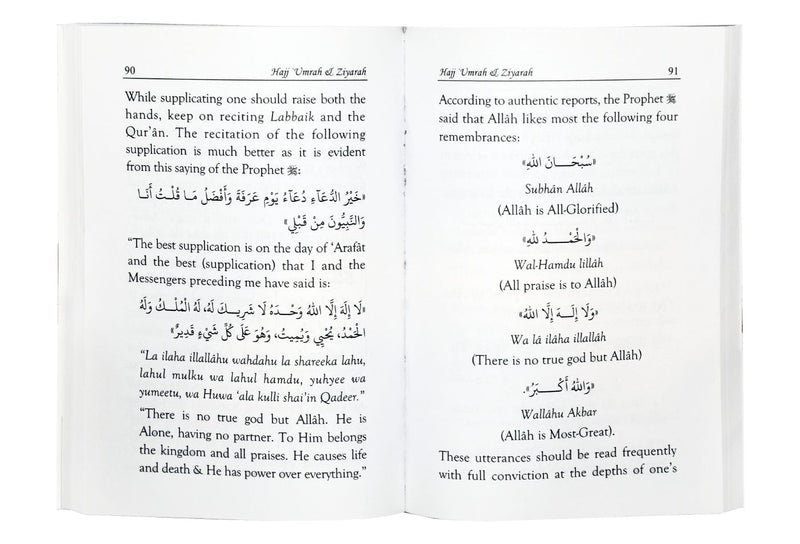 90 Hajj `Umrah & Ziyarah
While supplicating one should raise both the
hands, keep on reciting Labbaik and the
Qur'ân. The recitation of the following
supplication is much better as it is evident
from this saying of the Prophet ﷺ:
«خَيْرُ الدُّعَاءِ دُعَاءُ يَوْمِ عَرَفَةَ وَأَفْضَلُ مَا قُلْتُ أَنَا
وَالنَّبِيُّونَ مِنْ قَبْلِي»
"The best supplication is on the day of 'Arafât
and the best (supplication) that I and the
Messengers preceding me have said is:
«لَا إِلَهَ إِلَّا اللهُ وَحْدَهُ لَا شَرِيكَ لَهُ، لَهُ الْمُلْكُ وَلَهُ
الْحَمْدُ، يُحْيِي وَيُمِيتُ، وَهُوَ عَلَى كُلِّ شَيْءٍ قَدِيرٌ»
"La ilaha illallâhu wahdahu la shareeka lahu,
lahul mulku wa lahul hamdu, yuhyee wa
yumeetu, wa Huwa 'ala kulli shai'in Qadeer."
"There is no true god but Allâh. He is
Alone, having no partner. To Him belongs
the kingdom and all praises. He causes life
and death & He has power over everything."
Hajj `Umrah & Ziyarah 91
According to authentic reports, the Prophet ﷺ
said that Allâh likes most the following four
remembrances:
«سُبْحَانَ اللهِ»
Subhân Allâh
(Allâh is All-Glorified)
«وَالْحَمْدُ لِلهِ»
Wal-Hamdu lillâh
(All praise is to Allâh)
«وَلَا إِلَهَ إِلَّا اللهُ»
Wa lâ ilâha illallâh
(There is no true god but Allâh)
«وَاللهُ أَكْبَرُ».
Wallâhu Akbar
(Allâh is Most-Great).
These utterances should be read frequently
with full conviction at the depths of one's